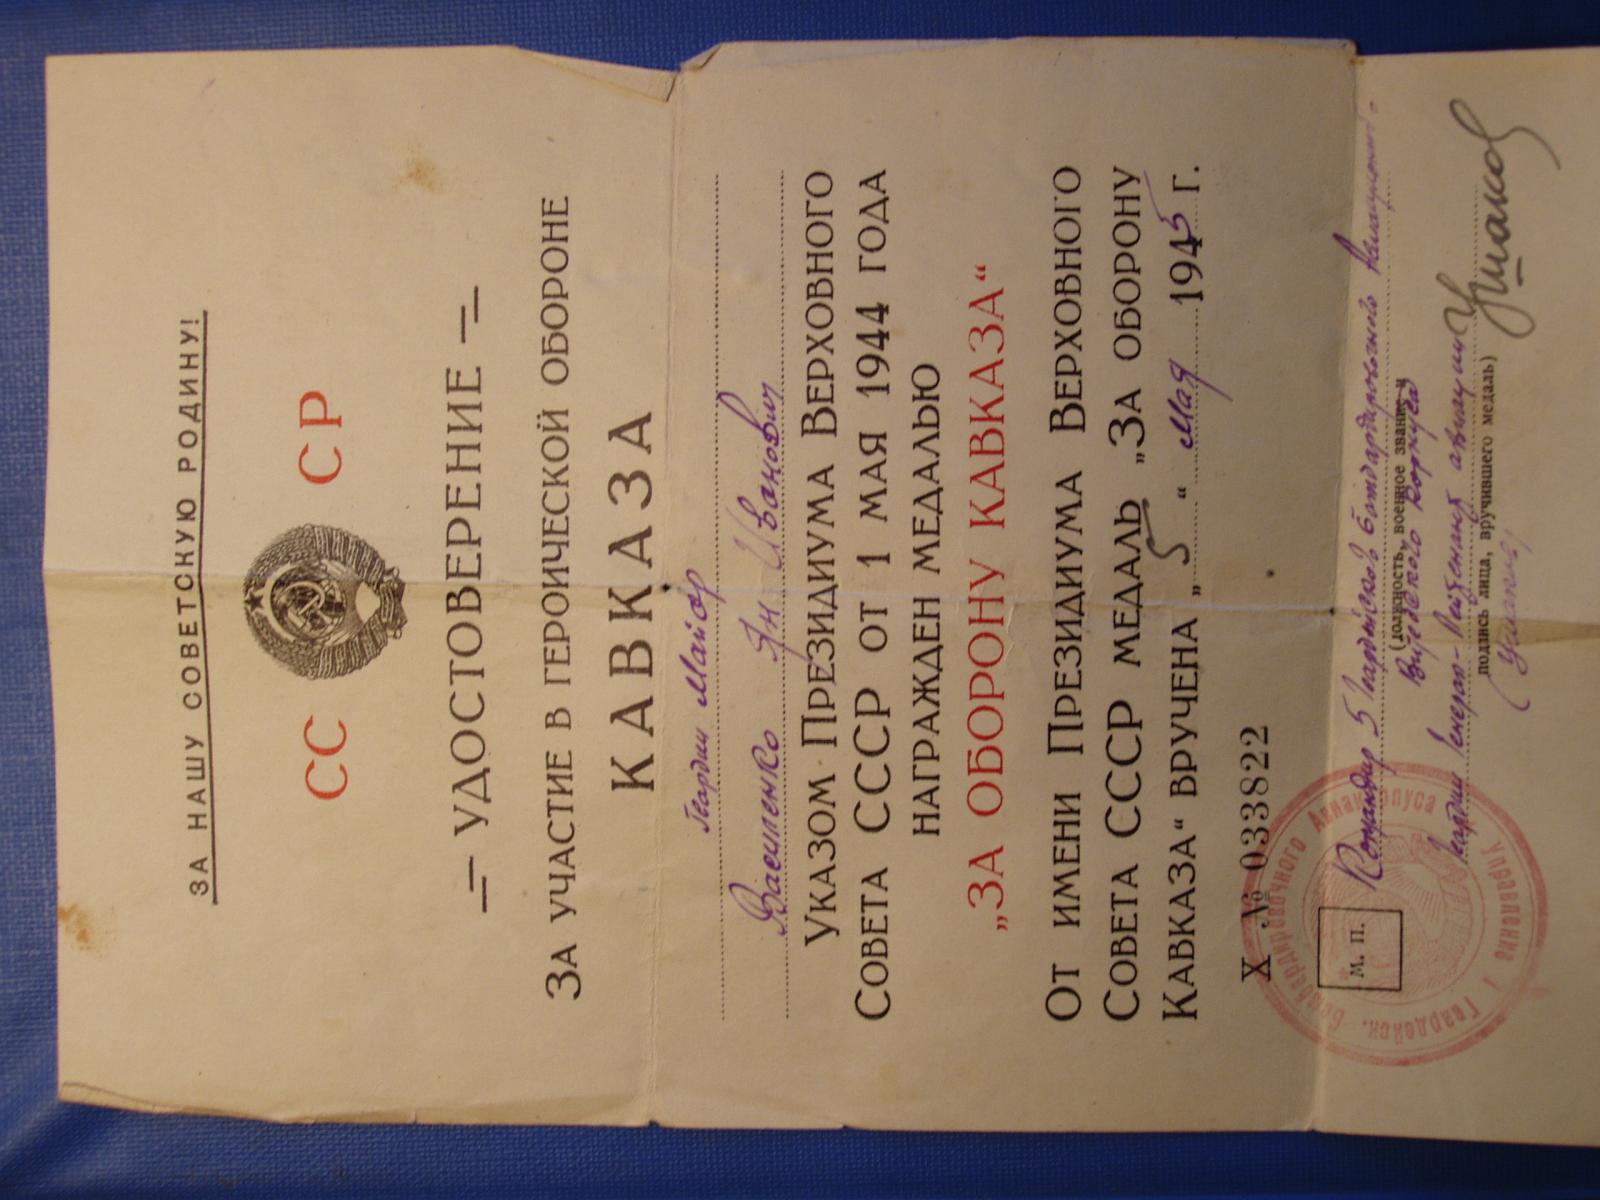 ЗА НАШУ СОВЕТСКУЮ РОДИНУ!
СС СР
УДОСТОВЕРЕНИЕ
ЗА УЧАСТИЕ В ГЕРОИЧЕСКОЙ ОБОРОНЕ
КАВКАЗА
Гвардии Майор
Василенко Ян Иванович
УКАЗОМ ПРЕЗИДИУМА ВЕРХОВНОГО
СОВЕТА СССР ОТ 1 МАЯ 1944 ГОДА
НАГРАЖДЕН МЕДАЛЬЮ
„ЗА ОБОРОНУ КАВКАЗА“
ОТ ИМЕНИ ПРЕЗИДИУМА ВЕРХОВНОГО
СОВЕТА СССР МЕДАЛЬ „ЗА ОБОРОНУ
КАВКАЗА“ ВРУЧЕНА „5“ Мая 1945 г.
Х № 033822
М. П.
Командир 5 Гвардейского Бомбардировочного Авиацион-
(должность, военное звание и
корпуса
Гвардии Генерал-Лейтенант авиации
подпись лица, вручившего медаль)
Ушаков
(Ушаков)
Управление Гвардейск. Бомбардировочного Авиакорпуса